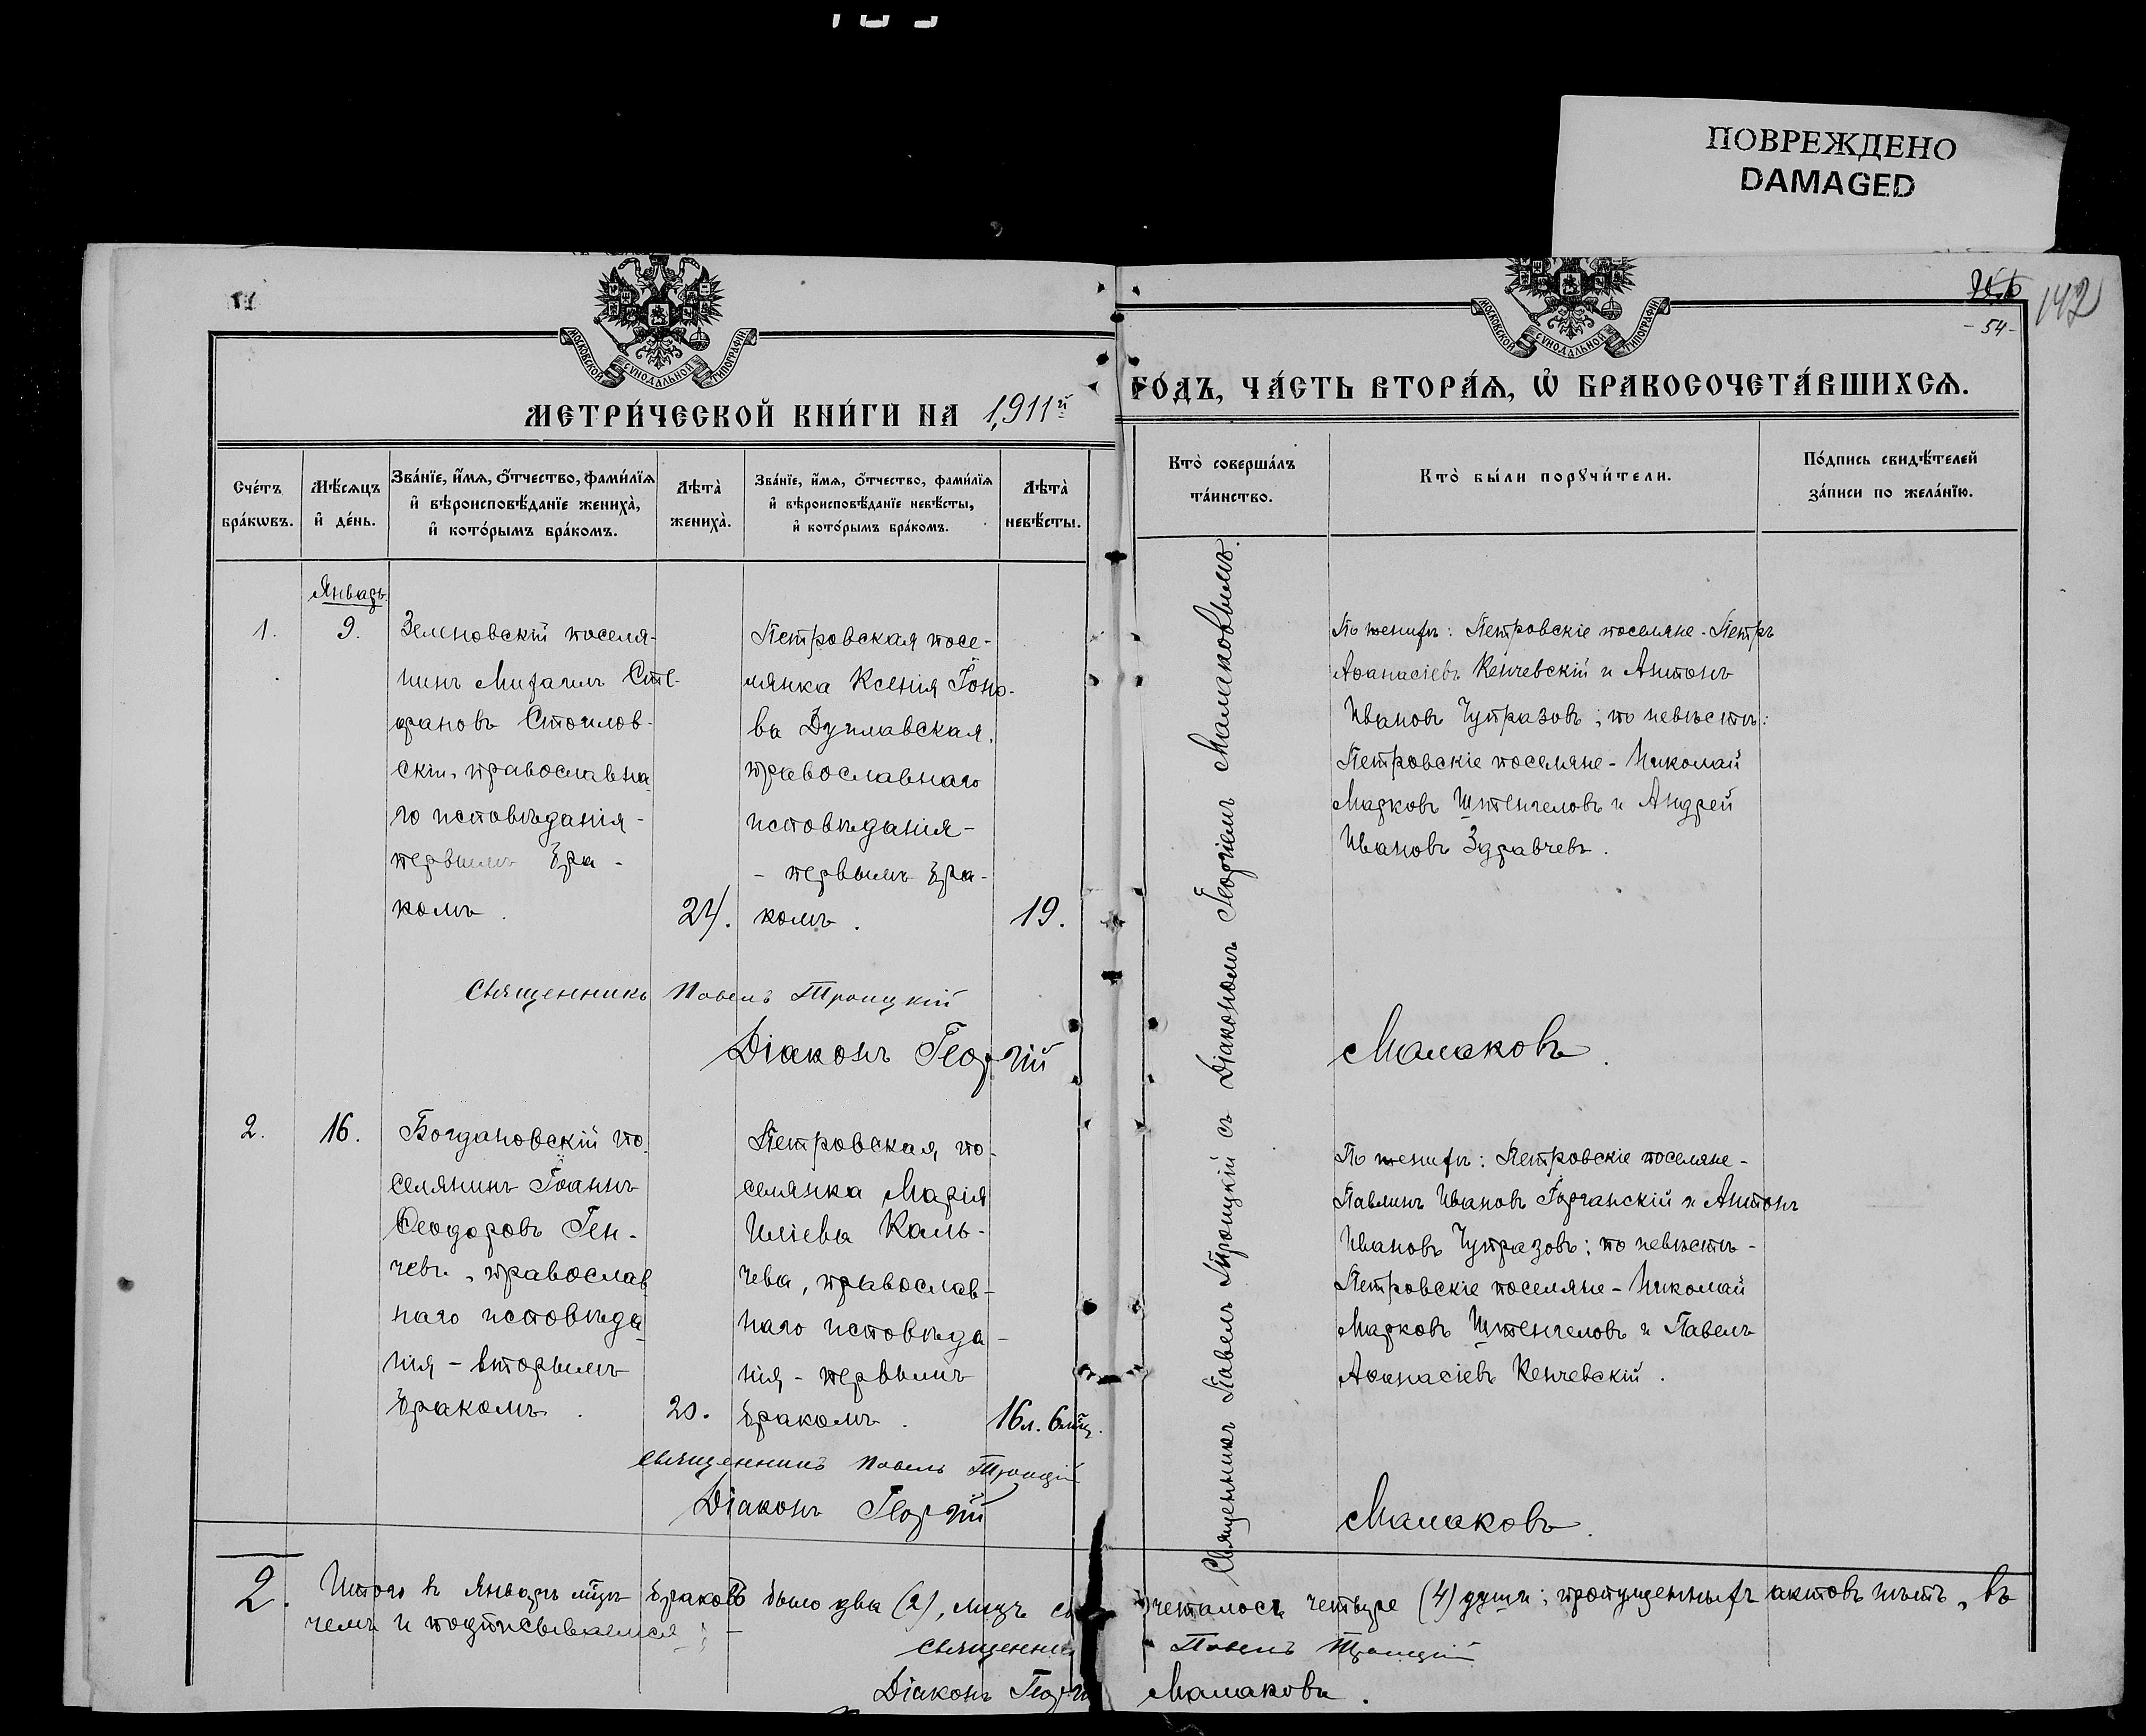 ПОВРЕЖДЕНО
DAMAGED
142
- 54 -
МОСКОВСКОЙ СѴНОДАЛЬНОЙ ТИПОГРАФІИ
МОСКОВСКОЙ СѴНОДАЛЬНОЙ ТИПОГРАФІИ
МЕТРИ́ЧЕСКОЙ КНИ́ГИ НА 1911й
ГО́ДЪ, ЧА́СТЬ ВТОРА́Ѧ, Ѡ҆ БРАКОСОЧЕТА́ВШИХСѦ.
Сче́тъ
бра́кѡвъ.
Мѣ́сяцъ
и҆ де́нь.
Зва́нїе, и҆́мѧ, ѻ҆́тчество, фами́лїѧ
и҆ вѣроисповѣ́данїе жениха̀,
и҆ кото́рымъ бра́комъ.
Лѣта̀
жениха̀.
Зва́нїе, и҆́мѧ, ѻ҆́тчество, фами́лїѧ
и҆ вѣроисповѣ́данїе невѣ́сты,
и҆ кото́рымъ бра́комъ.
Лѣта̀
невѣ́сты.
Кто̀ соверша́лъ
та́инство.
Кто̀ бы́ли порꙋчи́тели.
По́дпись свидѣ́телей
за́писи по жела́нїю.
Январь.
1.
9.
Зеленовскій поселя-
нинъ Михаилъ Сте-
фановъ Стоилов-
скій, православна
го исповѣданія -
первымъ бра -
комъ.
24.
Петровская посе-
лянка Ксенія Іоно-
ва Дуплавская,
православнаго
исповѣданія -
- первымъ бра-
комъ.
19.
Священникъ Павелъ Троицкій съ Діакономъ Георгіемъ Малаковымъ.
По женихѣ: Петровскіе поселяне - Петръ
Аѳанасіевъ Кенчевскій и Антонъ
Ивановъ Чупразовъ; по невѣстѣ:
Петровскіе поселяне - Николай
Марковъ Штенгеловъ и Андрей
Ивановъ Здравчевъ.
Священникъ Павелъ Троицкій
Діаконъ Георгій Малаковъ.
2.
16.
Богдановскій по
селянинъ Іоаннъ
Ѳеодоровъ Ген-
чевъ, православ
наго исповѣда
нія - вторымъ
бракомъ.
20.
Петровская по-
селянка Марія
Иліева Каль-
чева, православ-
наго исповѣда -
нія - первымъ
бракомъ.
16 л. 6 мц.
По женихѣ: Петровскіе поселяне -
Павлинъ Ивановъ Горчанскій и Антонъ
Ивановъ Чупразовъ; по невѣстѣ -
Петровскіе поселяне - Николай
Марковъ Штенгеловъ и Павелъ
Аѳанасіевъ Кенчевскій.
Священникъ Павелъ Троицкій
Діаконъ Георгій Малаковъ.
2. Итого въ Январѣ мцѣ браковъ было два (2), лицъ сочеталось четыре (4) души; пропущенныхъ актовъ нѣтъ, въ
чемъ и подписываемся: -
Священник Павелъ Троицкій
Діаконъ Георгі Малаковъ.